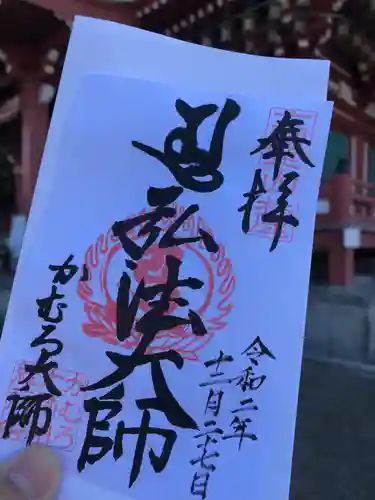 奉拝
令和二年
十二月二十七日
弘法大師
かむろ大師